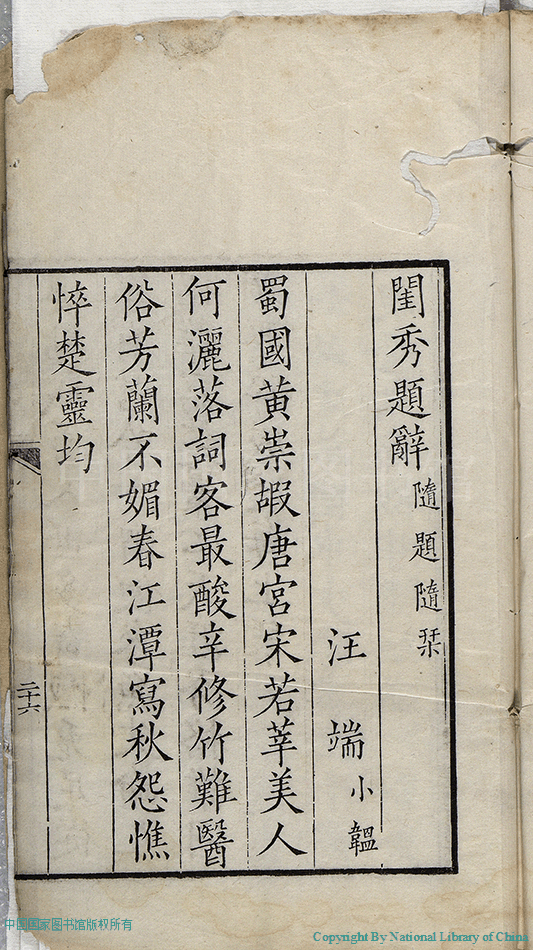 閨秀題辭 隨題隨栞
汪端 小韞
蜀國黃崇嘏唐宮宋若莘美人
何灑落詞客最酸辛修竹難醫
俗芳蘭不媚春江潭寫秋怨憔
悴楚靈均
二十六
中国国家图书馆版权所有
Copyright By National Library of China